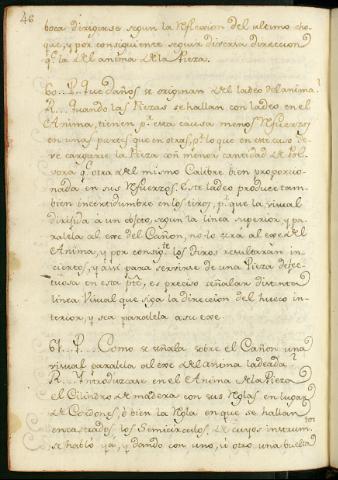 46
boca dirigirse segun la reflecsion del ultimo cho-
que, y por consiguiente seguir diversa direccion
qe. la del anima de la Pieza.
60.. P.. Que daños se originan del ladeo del anima?
R.. Quando las Piezas se hallan con ladeo en el
Anima, tienen pr. esta causa menos refuerzo
en unas partes que en otras, pr. lo que en este caso de-
ve cargarse la Pieza con menor cantidad de Pol-
vora qe. otra del mismo Calibre bien proporcio-
nada en sus refuerzos. Este ladeo produce tam-
bien incertidumbre en los tiros, pr. que la visual
dirijida a un objeto, segun la linea superior, y pa-
ralela al exe del Cañon, no lo será al exe del
Anima, y por consigte. los tiros resultarán in-
ciertos, y assi para servirse de una Pieza defec-
tuosa en esta pte., es preciso señalar distinta
linea visual que siga la direccion del hueco in-
terior, y sea paralela a su exe.
61.. P.... Como se señala sobre el Cañon una
visual paralela al exe del anima ladeada?
R... Introduzcase en el Anima de la Pieza
el Cilindro de madera con sus reglas en lugar
de Cordones, ó bien la regla en que se hallan
encastrados, los Semicirculos, de cuyos instrum.tos
se habló ya, y dando con uno, ú otro una buelta